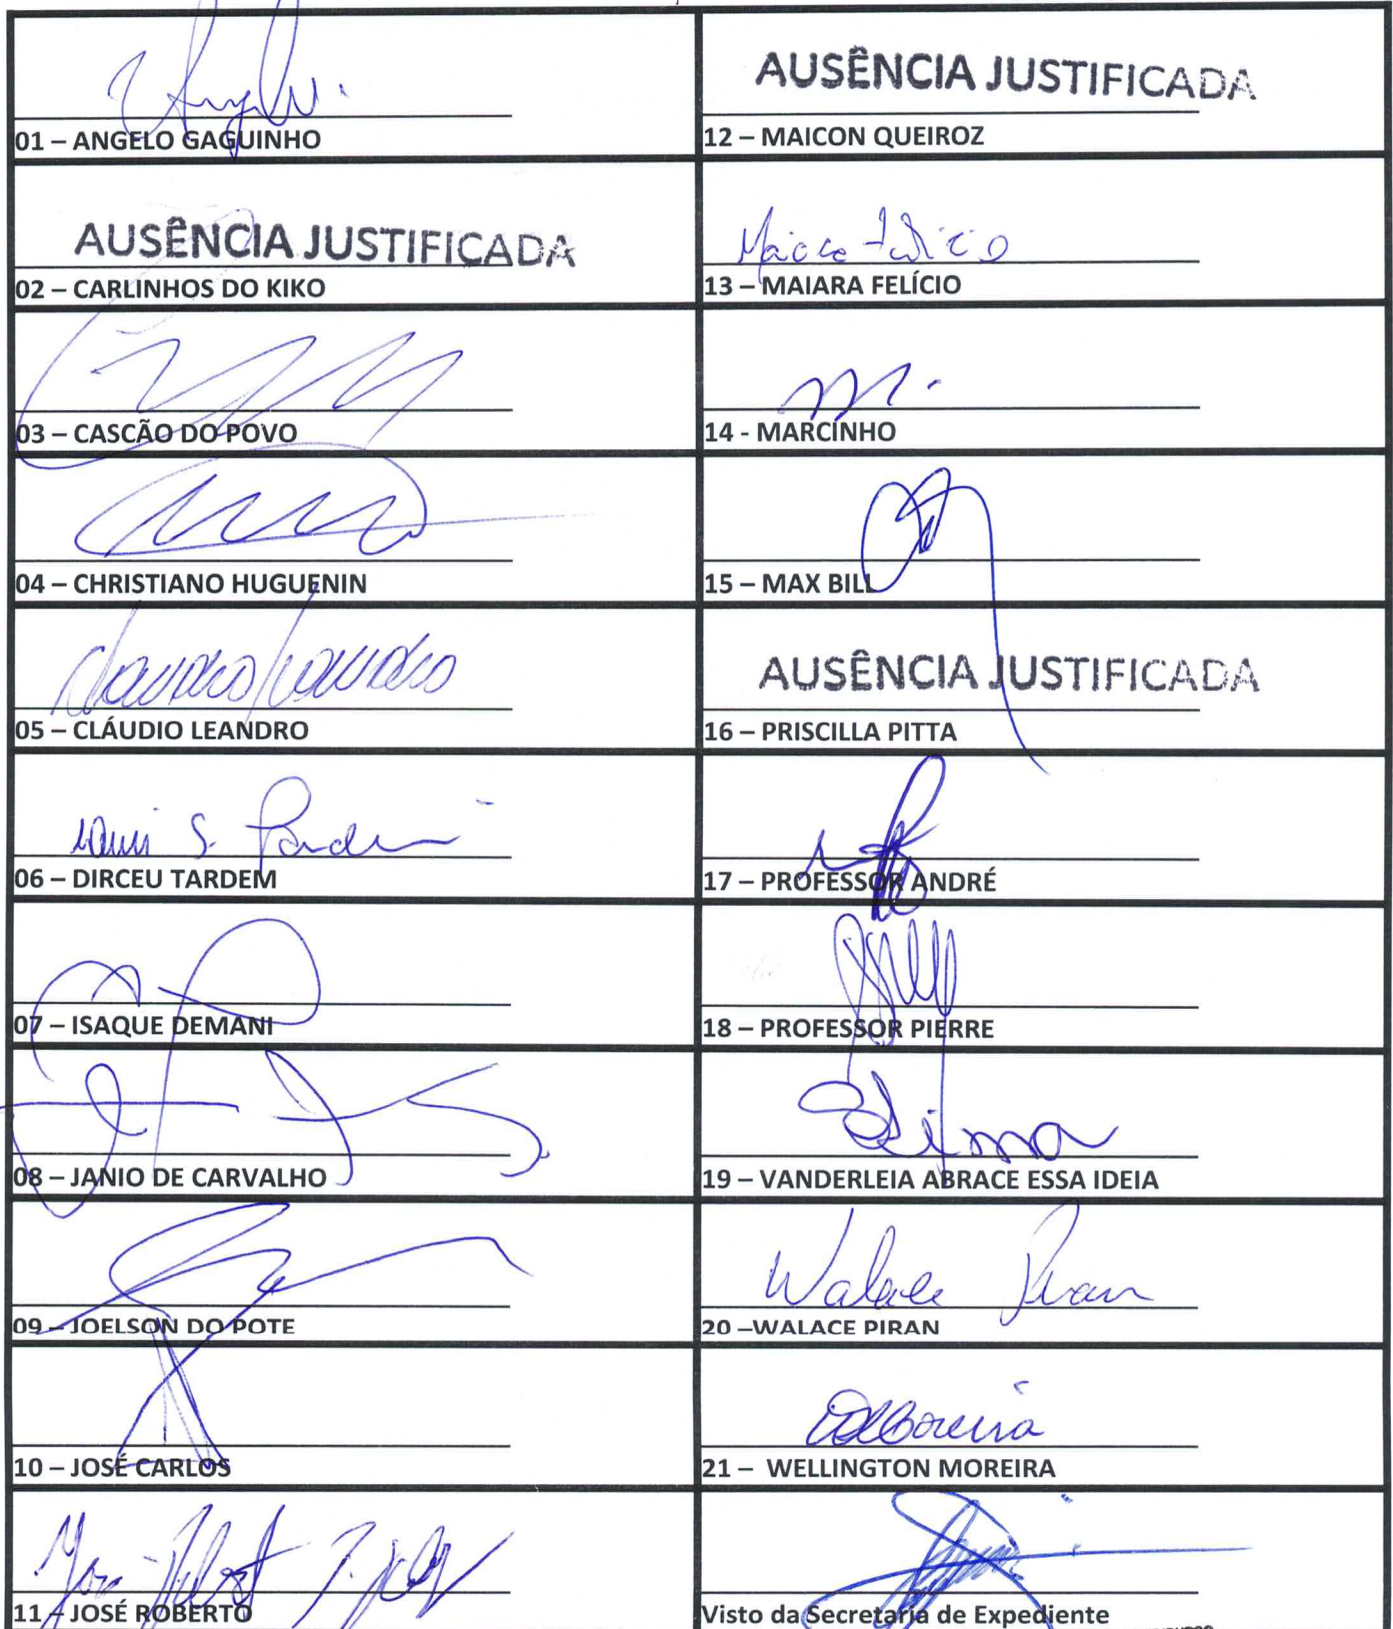 01 – ANGELO GAGUINHO
AUSÊNCIA JUSTIFICADA
02 – CARLINHOS DO KIKO
03 – CASCÃO DO POVO
04 – CHRISTIANO HUGUENIN
Claudio Leandro
05 – CLÁUDIO LEANDRO
06 – DIRCEU TARDEM
07 – ISAQUE DEMANI
08 – JANIO DE CARVALHO
09 – JOELSON DO POTE
10 – JOSÉ CARLOS
11 – JOSÉ ROBERTO
AUSÊNCIA JUSTIFICADA
12 – MAICON QUEIROZ
13 – MAIARA FELÍCIO
14 - MARCINHO
15 – MAX BILL
AUSÊNCIA JUSTIFICADA
16 – PRISCILLA PITTA
17 – PROFESSOR ANDRÉ
18 – PROFESSOR PIERRE
19 – VANDERLEIA ABRACE ESSA IDEIA
Walace Piran
20 –WALACE PIRAN
21 – WELLINGTON MOREIRA
Visto da Secretaria de Expediente